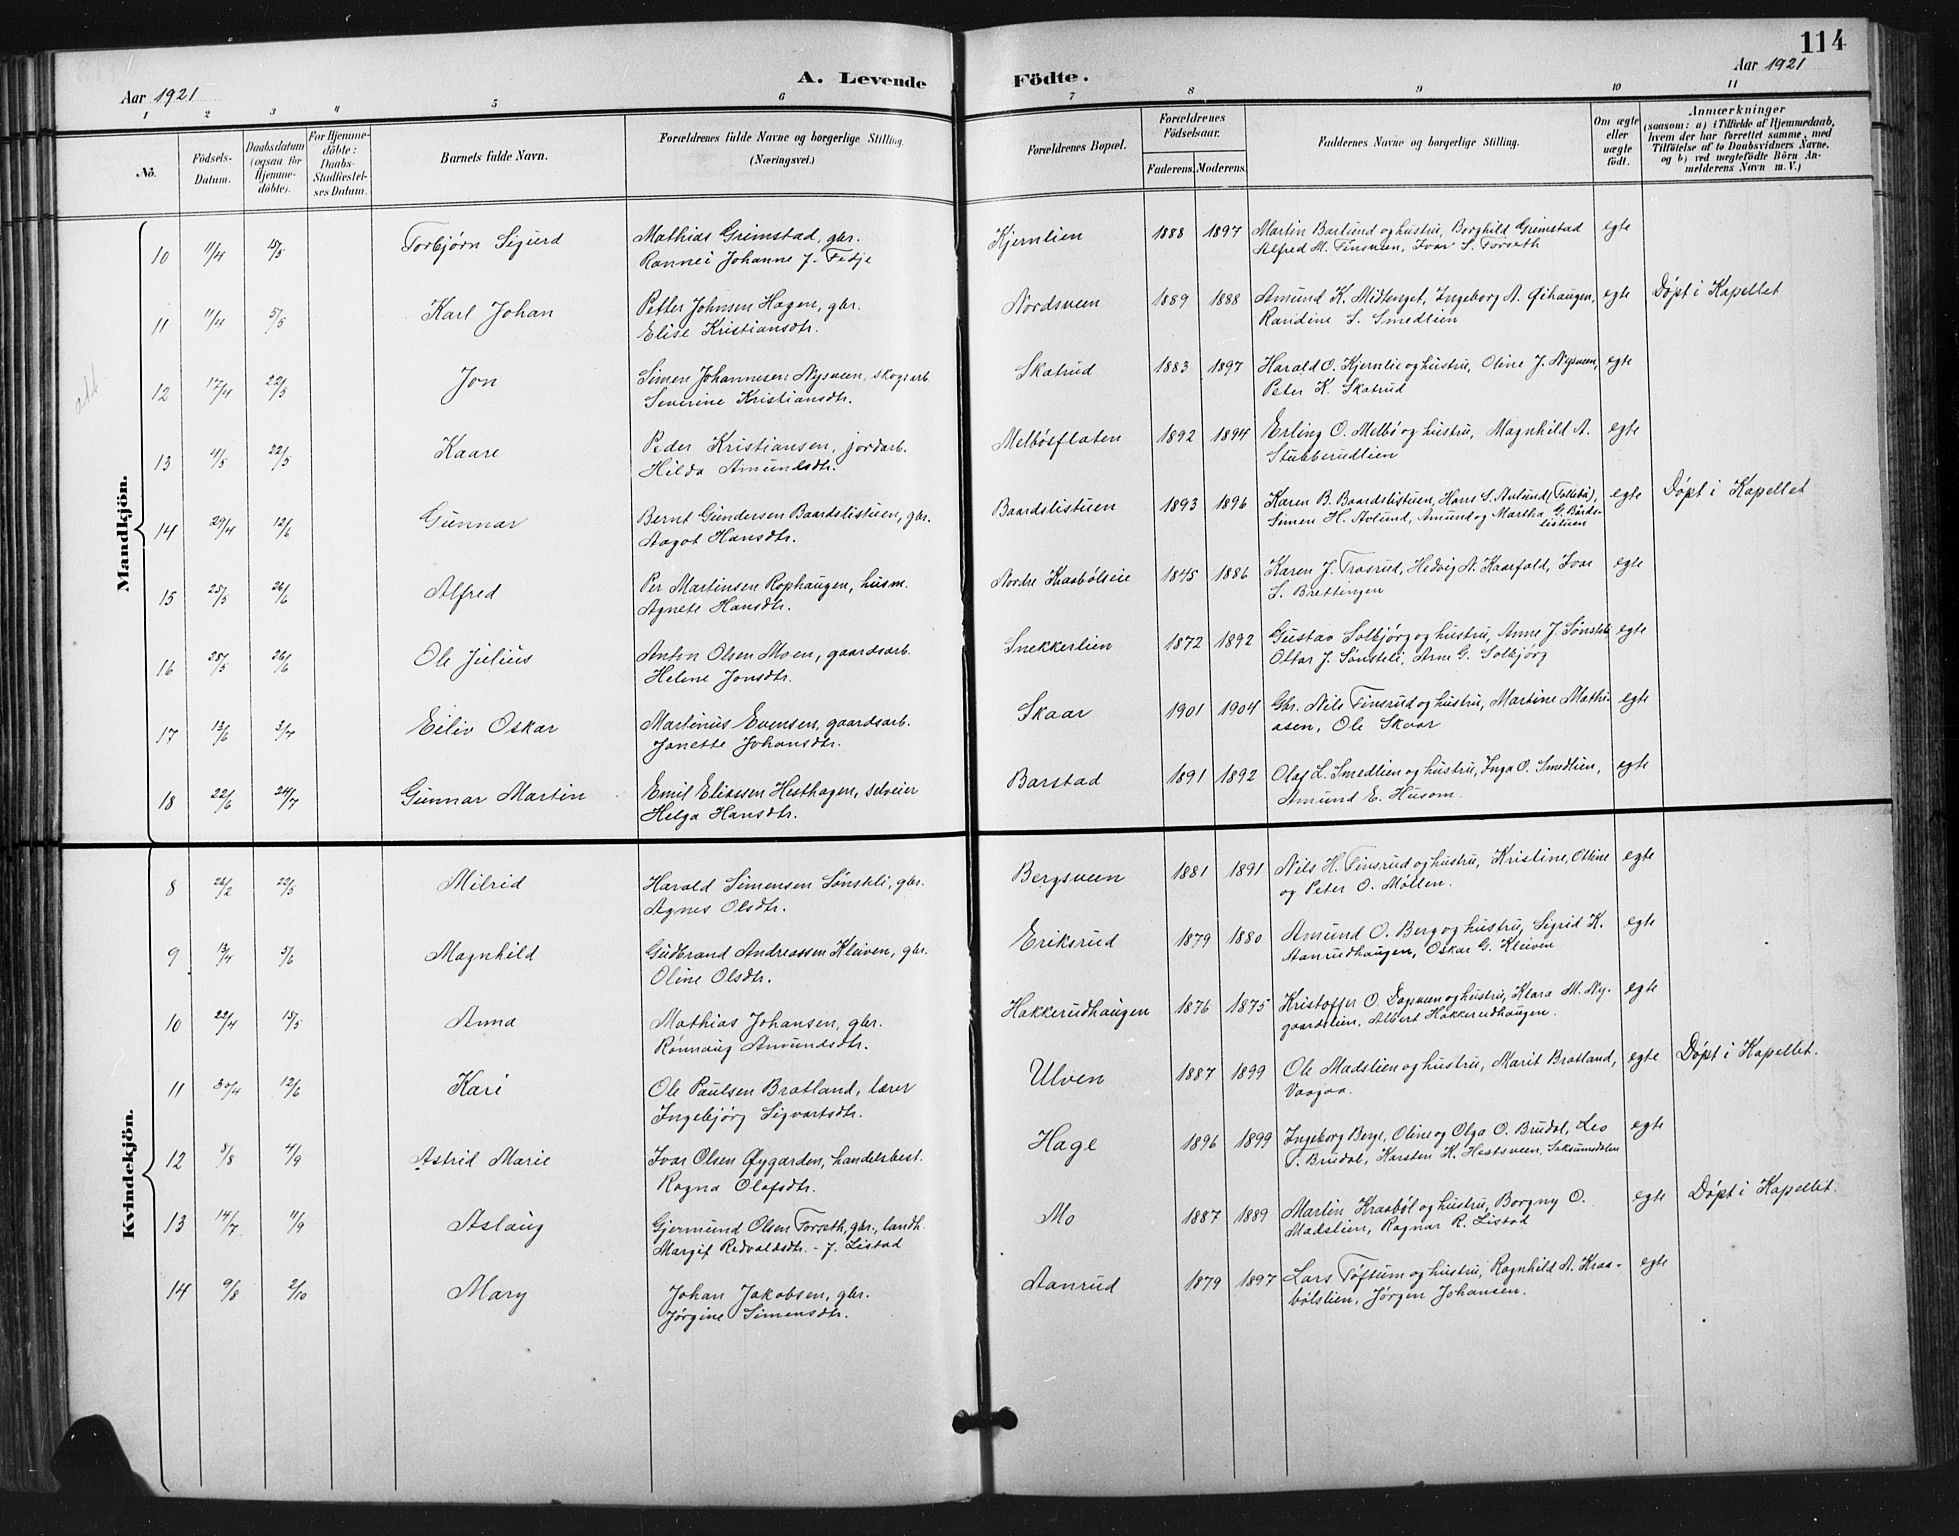 114
A. Levende Födte.
Aar 1921
Aar 1921
1 2 3 4 5 6 7 8 9 10 11
No.
Födsels-Datum.
Daabsdatum (ogsaa for Hjemme-döbte).
For Hjemme-döbte: Daabs-Stadfæstel-ses Datum.
Barnets fulde Navn.
Forældrenes fulde Navne og borgerlige Stilling. (Næringsvei.)
Forældrenes Bopæl.
Forældrenes Födselsaar.
Faderens. Moderens.
Faddernes Navne og borgerlige Stilling.
Om ægte eller uægte födt.
Anmærkninger
(saasom: a) i Tilfælde af Hjemmedaab, hvem der har forrettet samme, med Tilföielse af to Daabsvidners Navne, og b) ved uægtefödte Börn An-melderens Navn m. V.)
Mandkjön.
10 11/4 15/5 Torbjørn Sigurd Mathias Grimstad, gbr. Kjernlien 1888 1897 Martin Barlund og hustru, Borghild Grimstad egte
Rannei Johanne J. Tedje Alfred M. Tinsveen, Ivar S. Forseth
11 11/4 5/5 Karl Johan Petter Johnsen Hagen, gbr. Nordsveen 1889 1888 Amund K. Midtenget, Ingeborg A. Øihaugen, egte Døpt i Kapellet
Elise Kristiansdtr. Randine S. Smedlien
12 17/4 22/5 Jon Simen Johannesen Nysveen, skogsarb. Skatrud 1883 1897 Harald O. Kjernlie og hustru, Oline J. Nysveen, egte
Severine Kristiansdtr. Peter K. Skatrud
13 4/5 22/5 Kaare Peder Kristiansen, jordarb. Melbösflaten 1892 1894 Erling O. Melbö og hustru, Magnhild A. egte
Hilda Amundsdtr. Stubberudlien
14 29/4 12/6 Gunnar Bernt Gundersen Baardslistuen, gbr. Baardslistuen 1893 1896 Karen B. Baardslistuen, Hans S. Avlund (Follebu), egte Døpt i Kapellet
Aagot Hansdtr. Simen H. Avlund, Amund og Martha G. Bårds-listuen
15 25/5 26/6 Alfred Per Martinsen Rophaugen, husm. Nordre Kraabölseie 1845 1886 Karen J. Trosrud, Hedvig A. Kaarfald, Ivar egte
Agnete Hansdtr. S. Brettingen
16 28/5 26/6 Ole Julius Anton Olsen Moen, gaardsarb. Snekkerlien 1872 1892 Gustav Solbjørg og hustru, Anne J. Sönsteli egte
Helene Jonsdtr. Ottar J. Sönsteli, Arne G. Solbjørg
17 13/6 3/7 Eiliv Oskar Martinus Evensen, gaardsarb. Skaar 1901 1904 Gbr. Nils Tinsrud og hustru, Martine Mathi- egte
Janette Johansdtr. asen, Ole Skaar
18 22/6 24/7 Gunnar Martin Emil Eliassen Hesthagen, selveier Barstad 1891 1892 Olaf L. Smedlien og hustru, Inga O. Smedlien, egte
Helga Hansdtr. Amund E. Husom.
Kvindekjön.
8 26/2 22/5 Milrid Harald Simensen Sönsteli, gbr. Bergsveen 1881 1891 Nils H. Tinsrud og hustru, Kristine, Otline egte
Agnes Olsdtr. og Peter O. Möllen.
9 13/4 5/6 Magnhild Gudbrand Andreassen Kleiven, gbr. Eriksrud 1879 1880 Amund O. Berg og hustru, Sigrid K. egte
Oline Olsdtr. Aanrudhaugen, Oskar G. Kleiven
10 22/4 15/5 Anna Mathias Johansen, gbr. Hakkerudhaugen 1876 1875 Kristoffer O. Dapveen og hustru, Klara M. Ny- egte
Rønnaug Amundsdtr. gaardslien, Albert Hakkerudhaugen.
11 30/4 12/6 Kari Ole Paulsen Bratland, lærer Ulven 1887 1899 Ole Madslien og hustru, Marit Bratland, egte Døpt i Kapellet.
Ingebjörg Sigvartsdtr. Vaagaa.
12 3/8 4/9 Astrid Marie Ivar Olsen Øygarden, handelsbest. Hage 1896 1899 Ingeborg Berge, Oline og Olga O. Brudal, Leo egte
Ragna Olafsdtr. T. Brudal, Karsten K. Hestsveen, Saksumsdalen
13 14/7 11/9 Aslaug Gjermund Olsen Forseth, gbr., landh. Mo 1887 1889 Martin Kraaböl og hustru, Borgny O. egte Døpt i Kapellet.
Margit Redvaldsdtr. - f. Listad Madslien, Ragnar R. Listad
14 9/8 2/10 Mary Johan Jakobsen, gbr. Aanrud 1879 1897 Lars Töftum og hustru, Ragnhild A. Kraa- egte
Jörgine Simensdtr. bölslien, Jörgen Johansen.